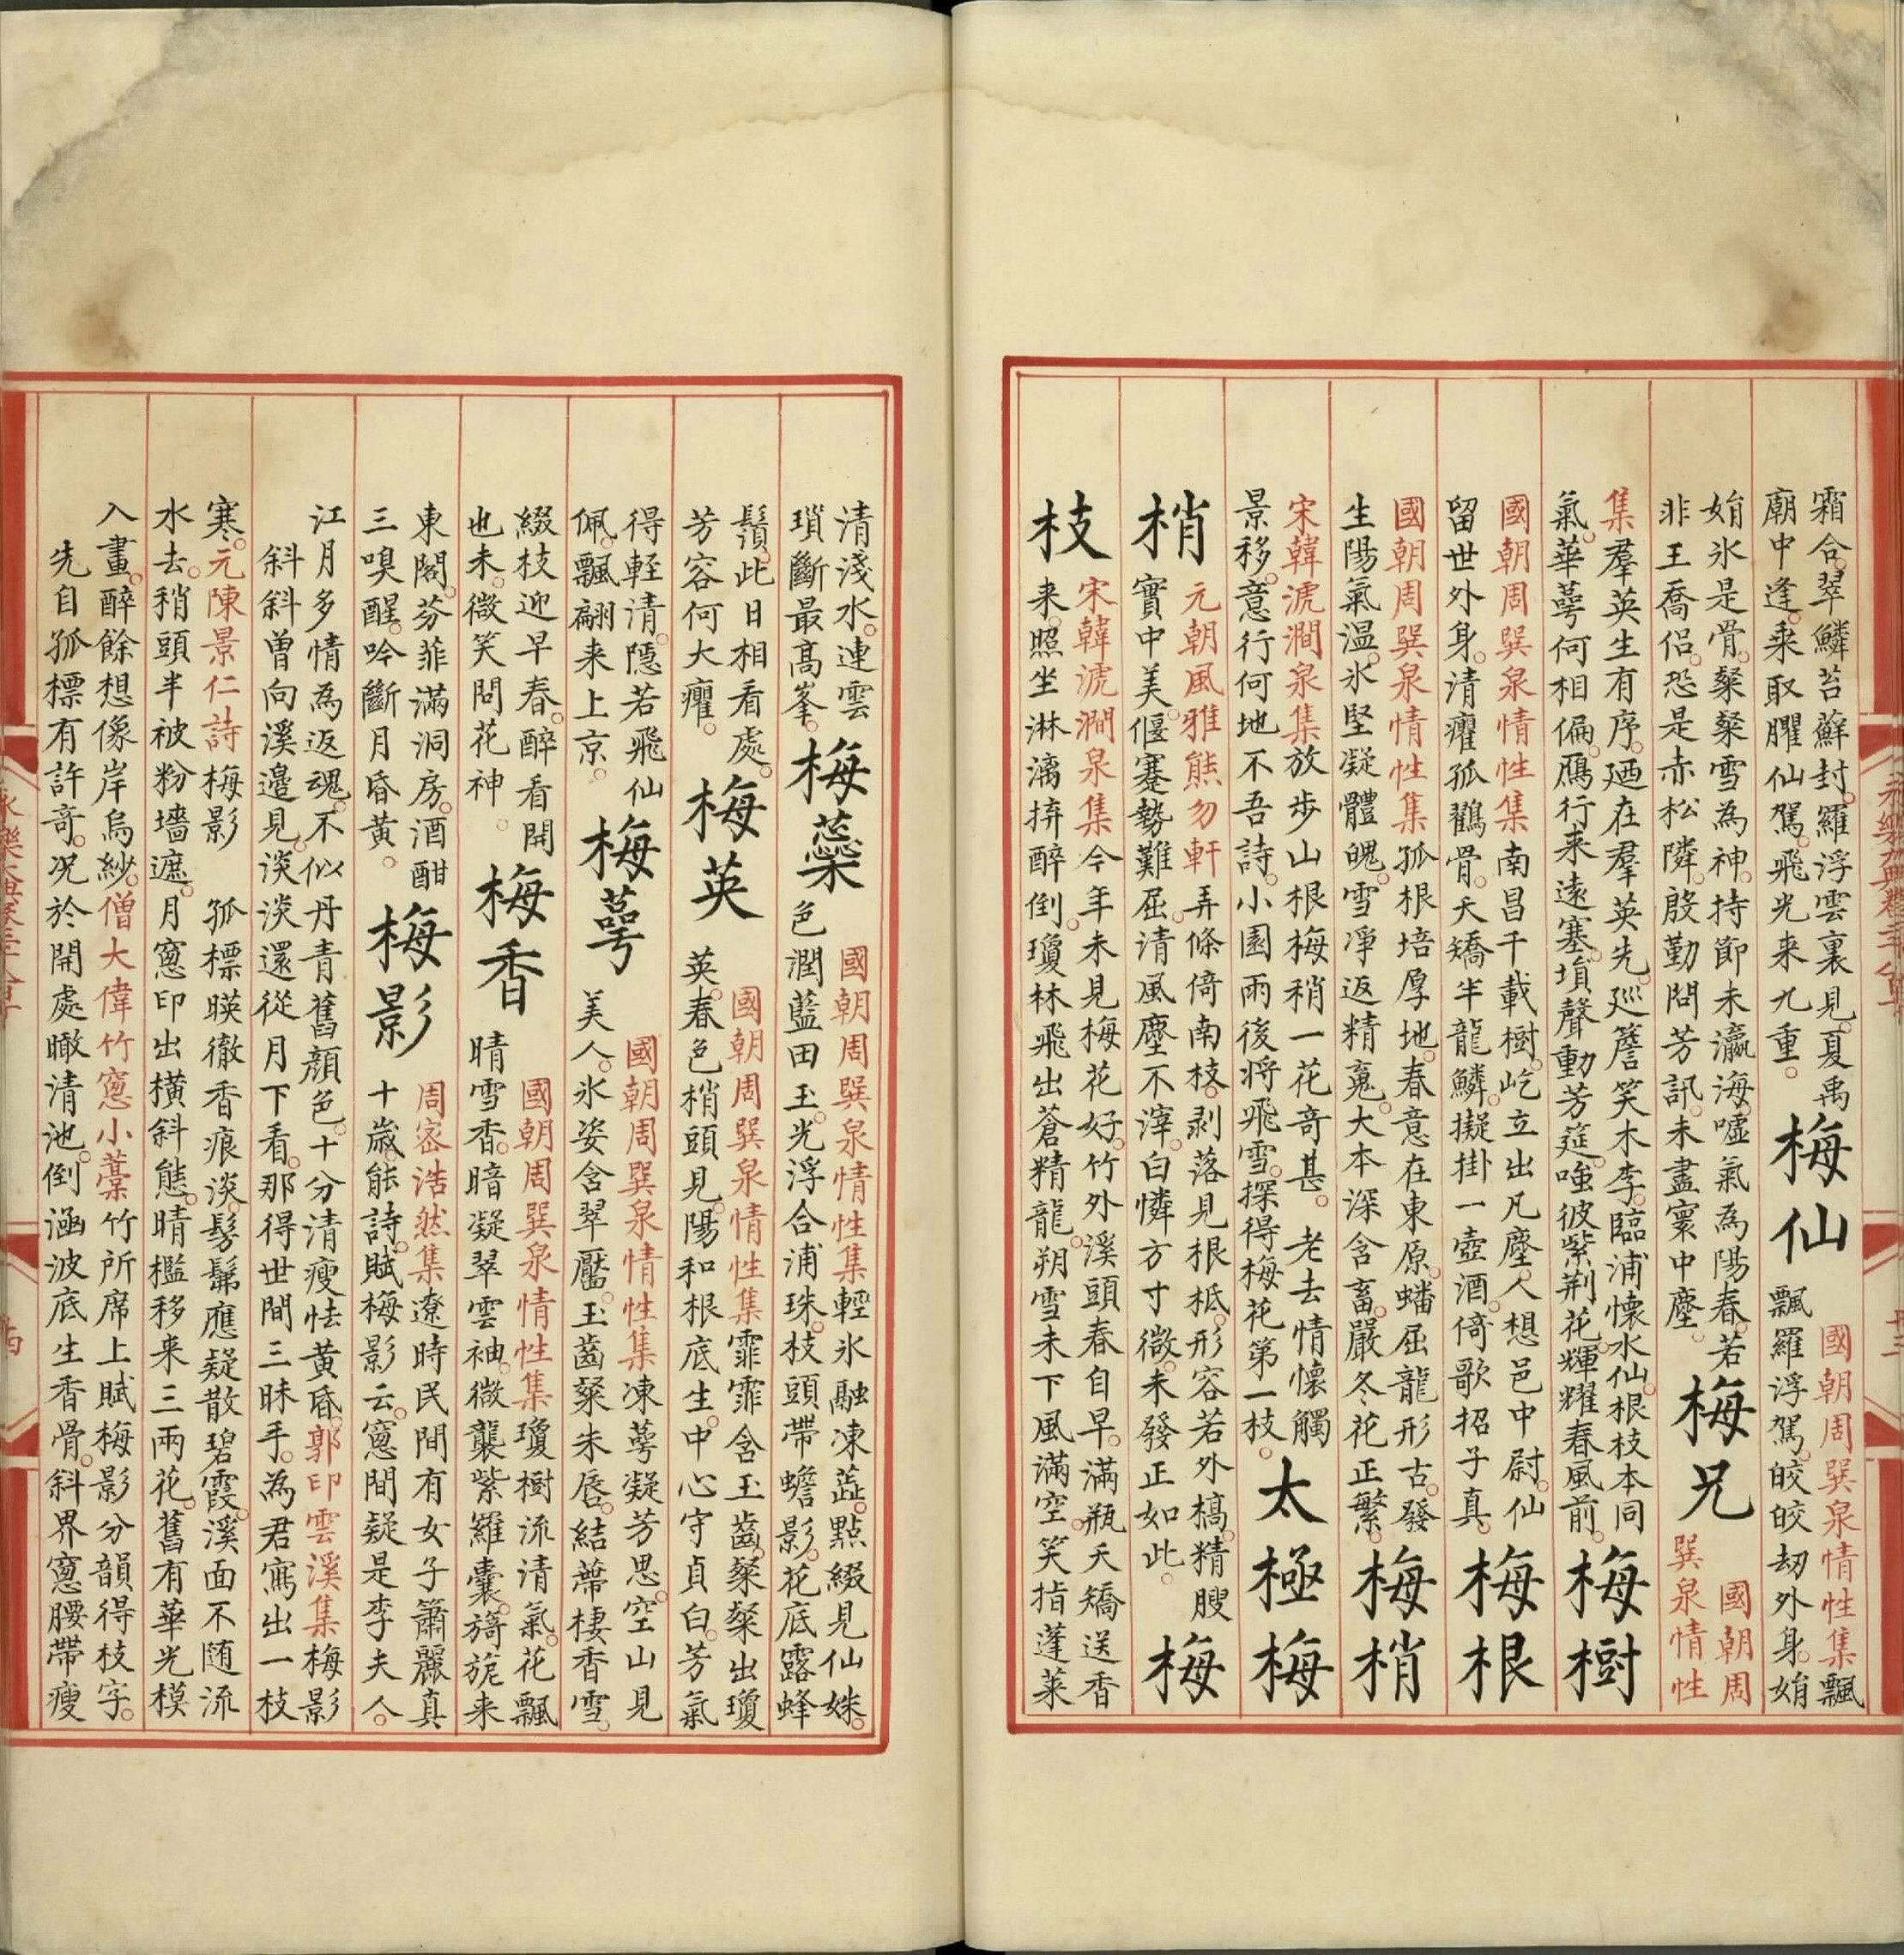 霜合。翠鱗苔蘚封。羅浮雲裏見。夏禹
廟中逢。乘取臞仙駕。飛光来九重。
梅仙
國朝周巽泉情性集飄
飄羅浮駕。皎皎劫外身。姢
姢氷是骨。粲粲雪為神。持節未瀛海。嘘氣為陽春。若
非王喬侣。恐是赤松隣。殷勤問芳訊。未盡寰中塵。
梅兄
國朝周
巽泉情性
集羣英生有序。迺在羣英先。廵簷笑木李。臨浦懷水仙。根枝本同
氣。華萼何相偏。鴈行来遠塞。塤聲動芳筵。嗤彼紫荆花。輝耀春風前。
梅樹
國朝周巽泉情性集南昌千載樹。屹立出凡塵。人想邑中尉。仙
留世外身。清癯孤鸛骨。夭矯半龍鱗。擬掛一壺酒。倚歌招子真。
梅根
國朝周巽泉情性集孤根培厚地。春意在東原。蟠屈龍形古。發
生陽氣温。氷堅凝體魄。雪凈返精䰟。大本深含畜。嚴冬花正繁。
梅梢
宋韓淲澗泉集放步山根梅稍一花奇甚。 老去情懷觸
景移。意行何地不吾詩。小園雨後将飛雪。探得梅花第一枝。
太極梅
梢
元朝風雅熊勿軒弄條倚南枝。剥落見根柢。形容若外槁。精腴
實中美。偃蹇勢難屈。清風塵不滓。白憐方寸微。未發正如此。
梅
枝
宋韓淲澗泉集今年未見梅花好。竹外溪頭春自早。滿瓶夭矯送香
来。照坐淋漓拚醉倒。瓊林飛出蒼精龍。朔雪未下風滿空。笑指蓬莱
清淺水。連雲
瑣斷最高峯。
梅蘂
國朝周巽泉情性集輕氷融凍蕋。點綴見仙姝。
色潤藍田玉。光浮合浦珠。枝頭帶蟾影。花底露蜂
鬚。此日相看處。
芳容何大癯。
梅英
國朝周巽泉情性集霏霏含玉齒。粲粲出瓊
英。春色梢頭見。陽和根底生。中心守貞白。芳氣
得輕清。隱若飛仙
佩。飄翩来上京。
梅萼
國朝周巽泉情性集凍萼凝芳思。空山見
美人。氷姿含翠靨。玉齒粲朱唇。結蔕棲香雪。
綴枝迎早春。醉看開
也未。微笑問花神。
梅香
國朝周巽泉情性集瓊樹流清氣。花飄
晴雪香。暗凝翠雲袖。微襲紫羅囊。旖旎来
東閣。芬菲滿洞房。酒酣
三嗅醒。吟斷月昏黄。
梅影
周密浩然集遼時民間有女子簫麗真
十歲。能詩。賦梅影云。窻間疑是李夫人。
江月多情為返魂。不似丹青舊顔色。十分清瘦怯黄昏。郭印雲溪集梅影
斜斜曾向溪邉見。淡淡還從月下看。那得世間三昧手。為君寫出一枝
寒。元陳景仁詩梅影 孤標暎徹香痕淡。髣髴應疑散碧霞。溪面不随流
水去。稍頭半被粉墻遮。月窻印出横斜態。晴檻移来三兩花。舊有華光模
入畫。醉餘想像岸烏紗。僧大偉竹窻小藁竹所席上賦梅影分韻得枝字。
先自孤標有許竒。况於開處瞰清池。倒涵波底生香骨。斜界窻腰帶瘦